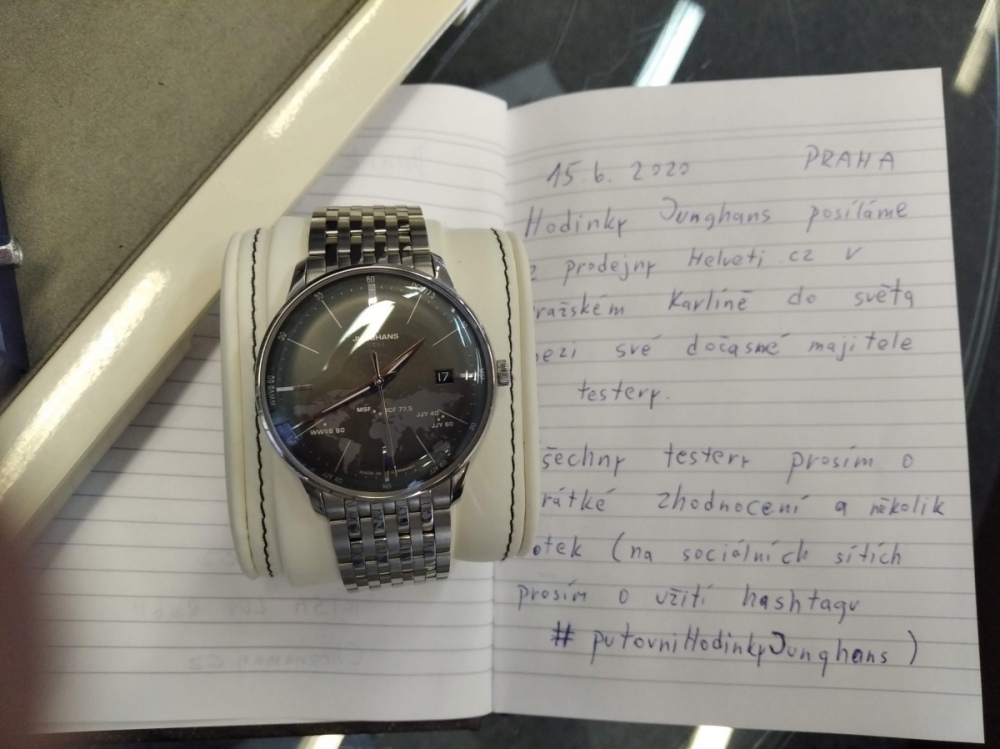 15.6. 2020 PRAHA
Hodinky Junghans posíláme
z prodejny Helveti.cz v
ražském Karlíně do světa
ezi své dočasné majitele
testery.
šechny testery prosím o
rátké zhodnocení a několik
otek (na sociálních sítích
prosím o užití hashtagu
#putovniHodinkyJunghans)
JUNGHANS
17
MSF DCF 77.5
JJY 40
JJY 60
WWVB 60